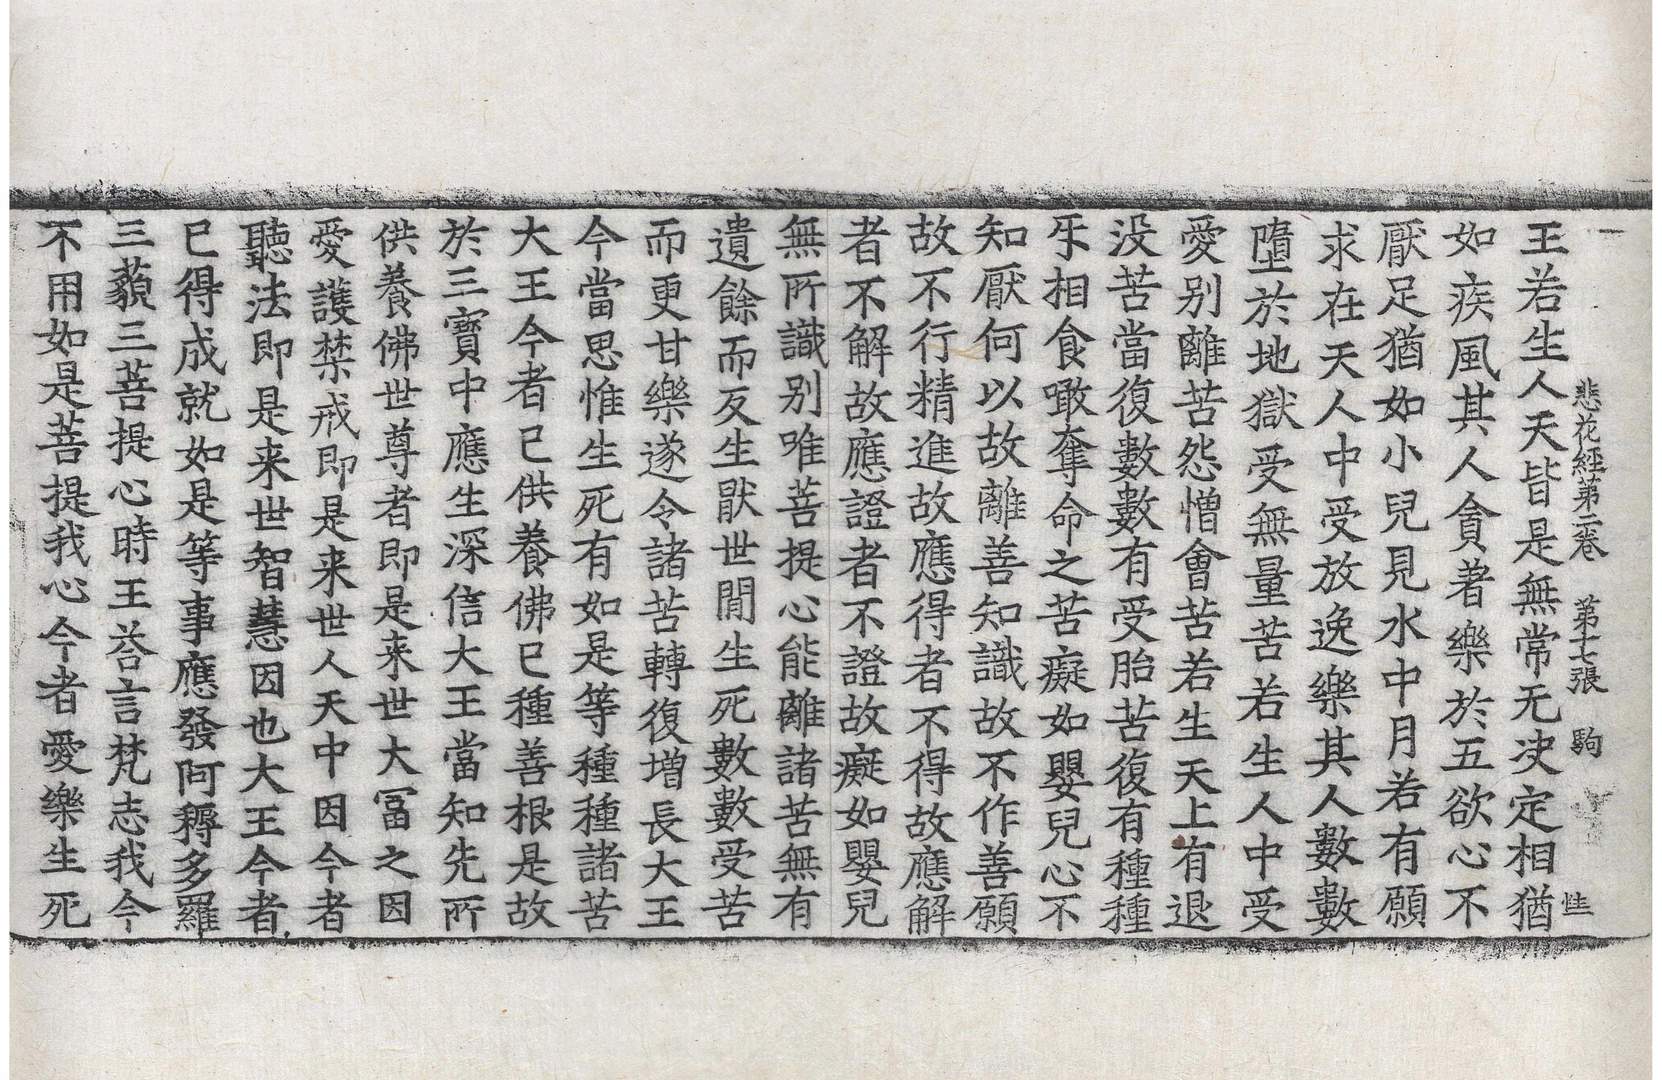 悲花經第二卷　第十七張　駒
王若生人天皆是無常无决定相猶
如疾風其人貪著樂於五欲心不
厭足猶如小兒見水中月若有願
求在天人中受放逸樂其人數數
墮於地獄受無量苦若生人中受
愛別離苦怨憎會苦若生天上有退
没苦當復數數有受胎苦復有種種
牙相食噉奪命之苦癡如嬰兒心不
知厭何以故離善知識故不作善願
故不行精進故應得者不得故應解
者不解故應證者不證故癡如嬰兒
無所識別唯菩提心能離諸苦無有
遺餘而反生猒世閒生死數數受苦
而更甘樂遂令諸苦轉復增長大王
今當思惟生死有如是等種種諸苦
大王今者已供養佛已種善根是故
於三寶中應生深信大王當知先所
供養佛世尊者即是来世大冨之因
愛護禁戒即是来世人天中因今者
聽法即是来世智慧因也大王今者
已得成就如是等事應發阿耨多羅
三藐三菩提心時王荅言梵志我今
不用如是菩提我心今者愛樂生死